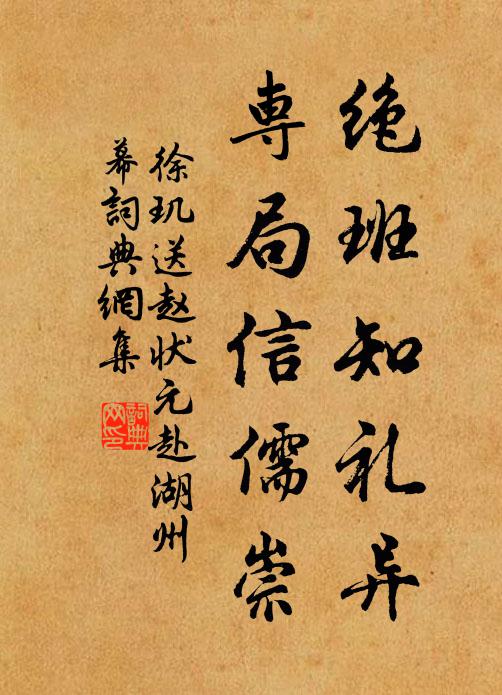 绝班知礼异
専局信儒崇
徐玑送赵状元赴湖州
幕詞典網集
詞典網印